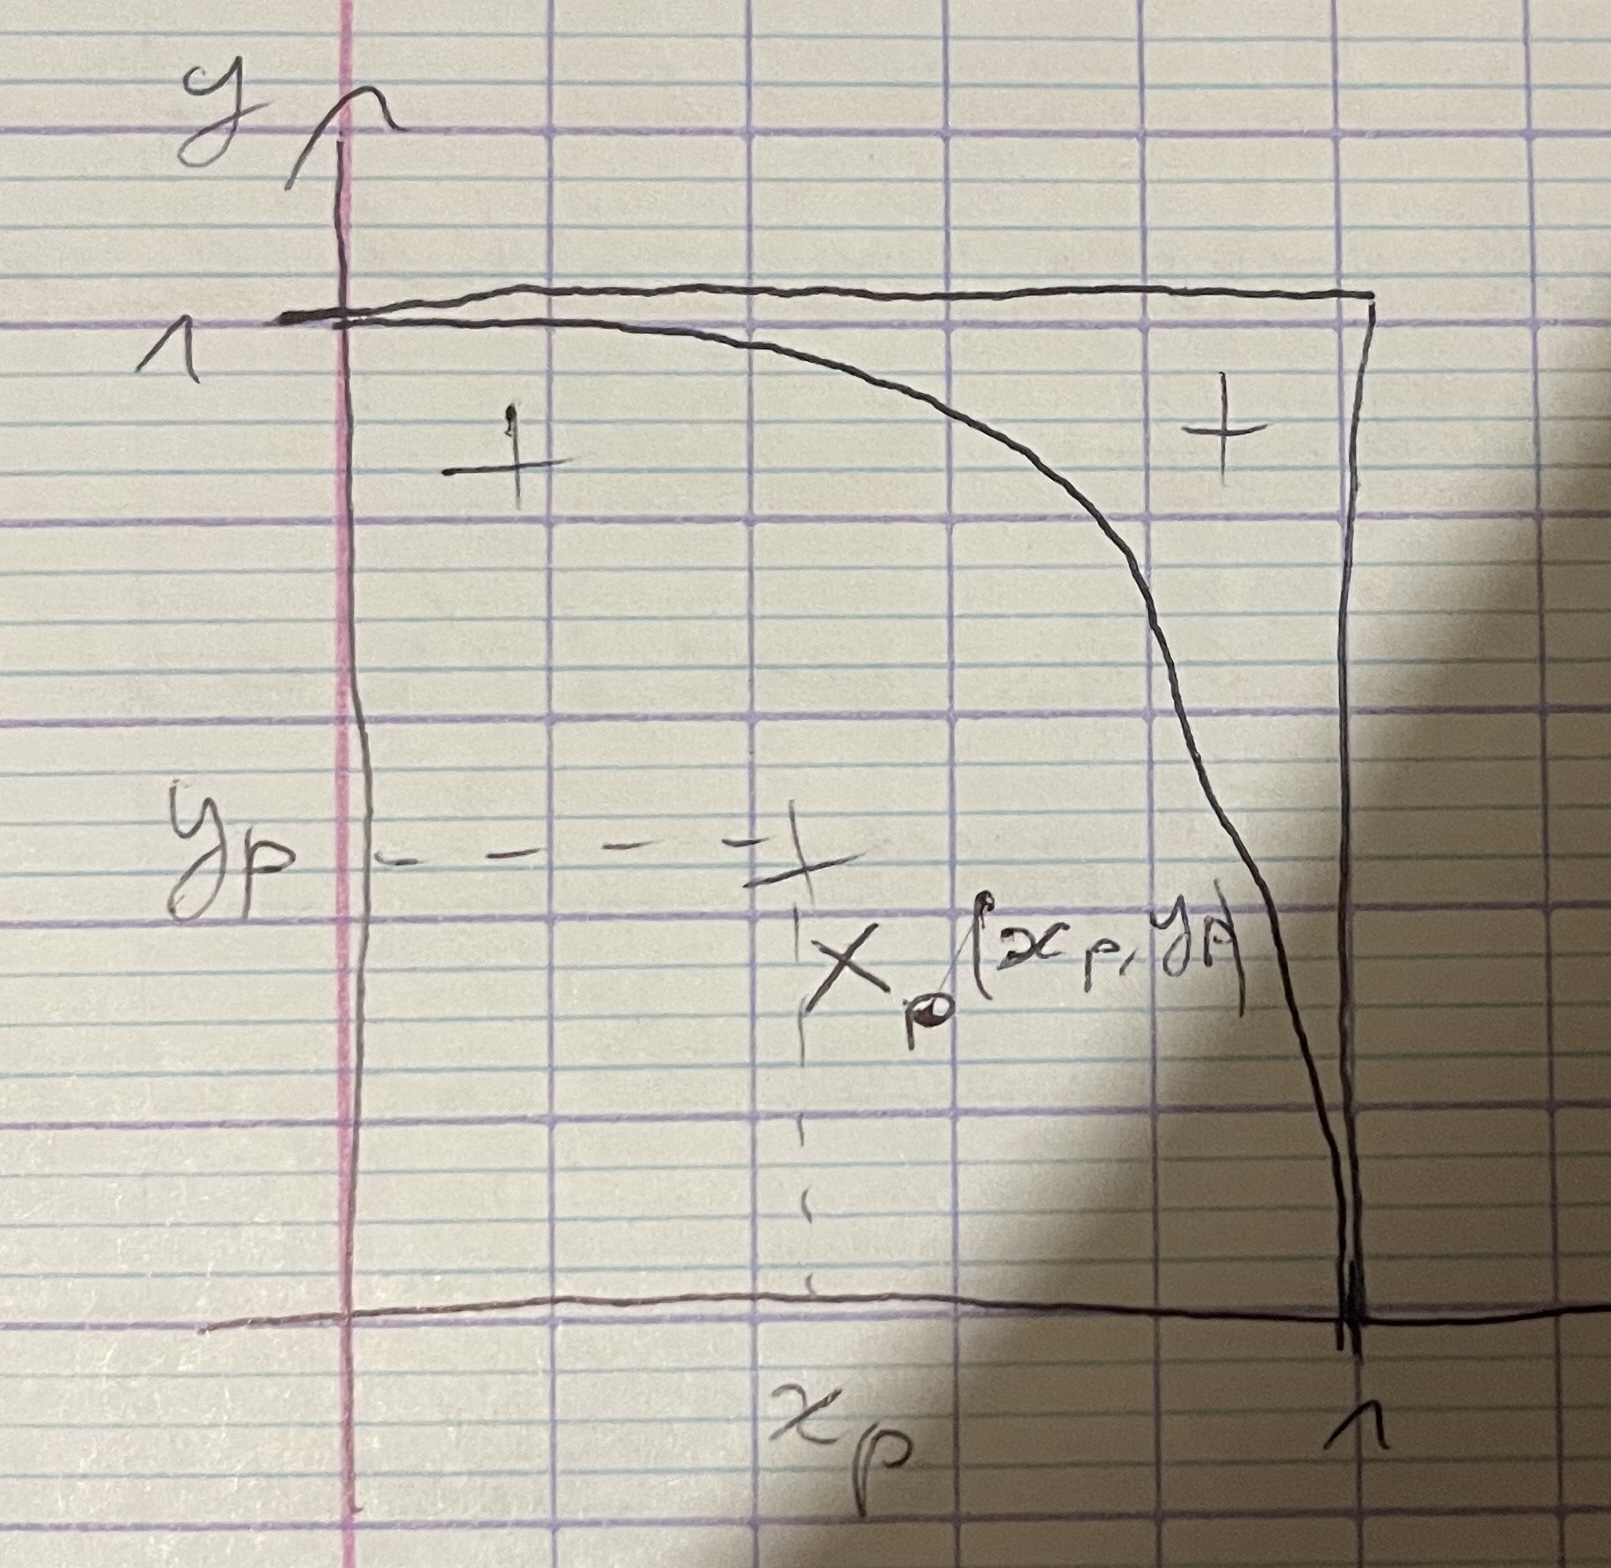 y
1
+ +
yp
+
Xp (xp, yp)
xp 1